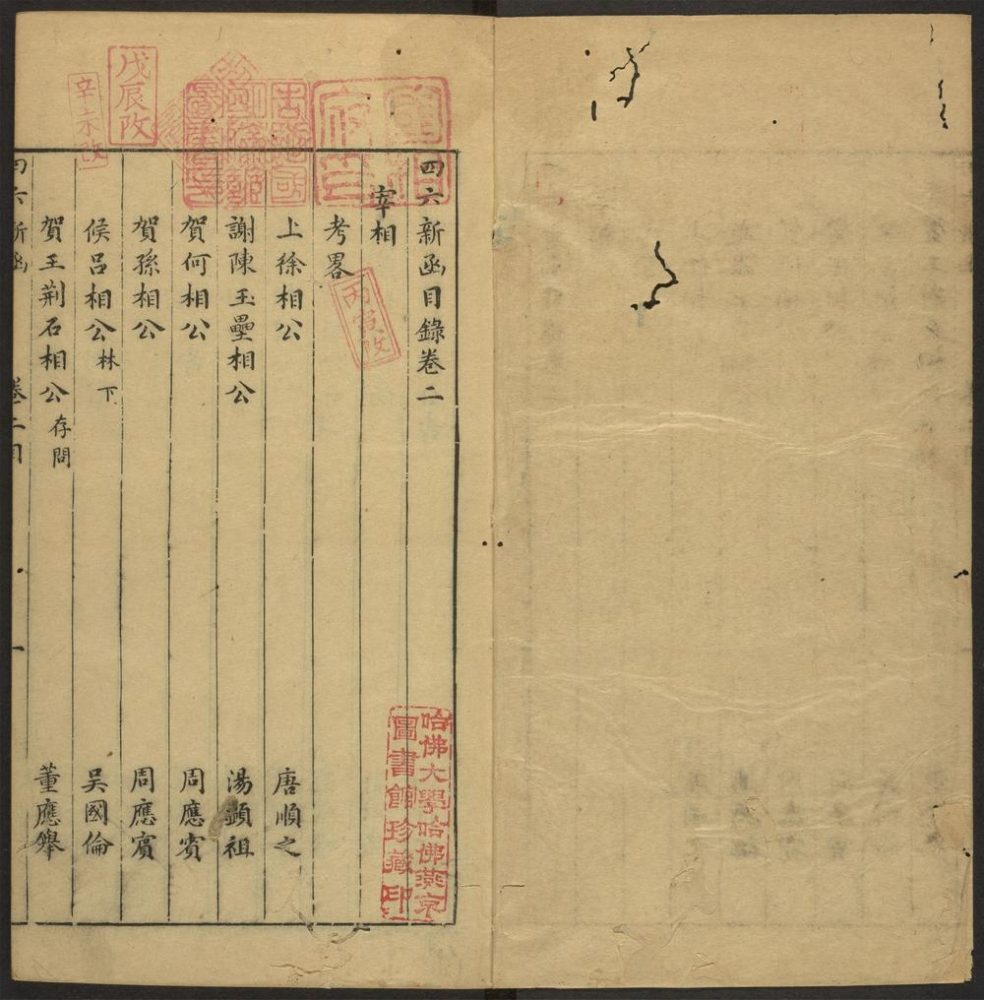 四六新函目錄卷二
宰相
考畧
上徐相公 唐順之
謝陳玉壘相公 湯顯祖
賀何相公 周應賓
賀孫相公 周應賓
候呂相公林下 吳國倫
賀王荆石相公存問 董應舉
四六新函 卷二目 一
戊辰改
辛未改
丙寅改
哈佛大學哈佛燕京圖書館珍藏印